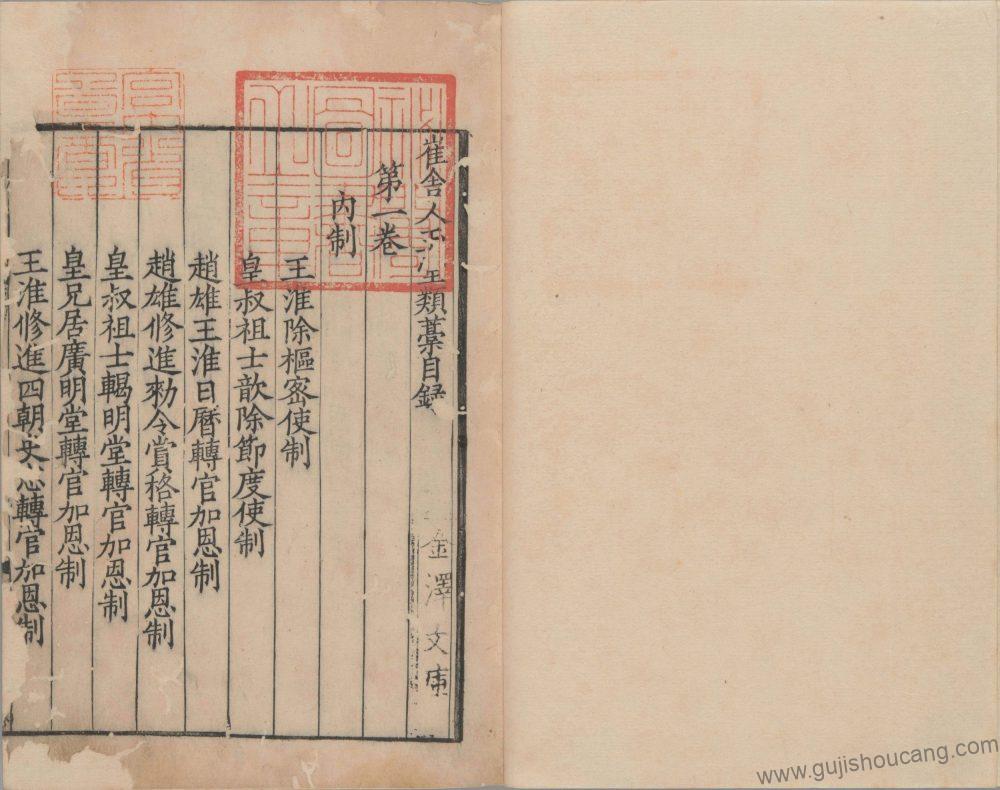 崔舍人類藁目録
金澤文庫
第一卷
内制
王淮除樞宻使制
皇叔祖士歆除節度使制
趙雄王淮日曆轉官加恩制
趙雄修進勑令賞格轉官加恩制
皇叔祖士輵明堂轉官加恩制
皇兄居廣明堂轉官加恩制
王淮修進四朝史志轉官加恩制
www.gujishoucang.com